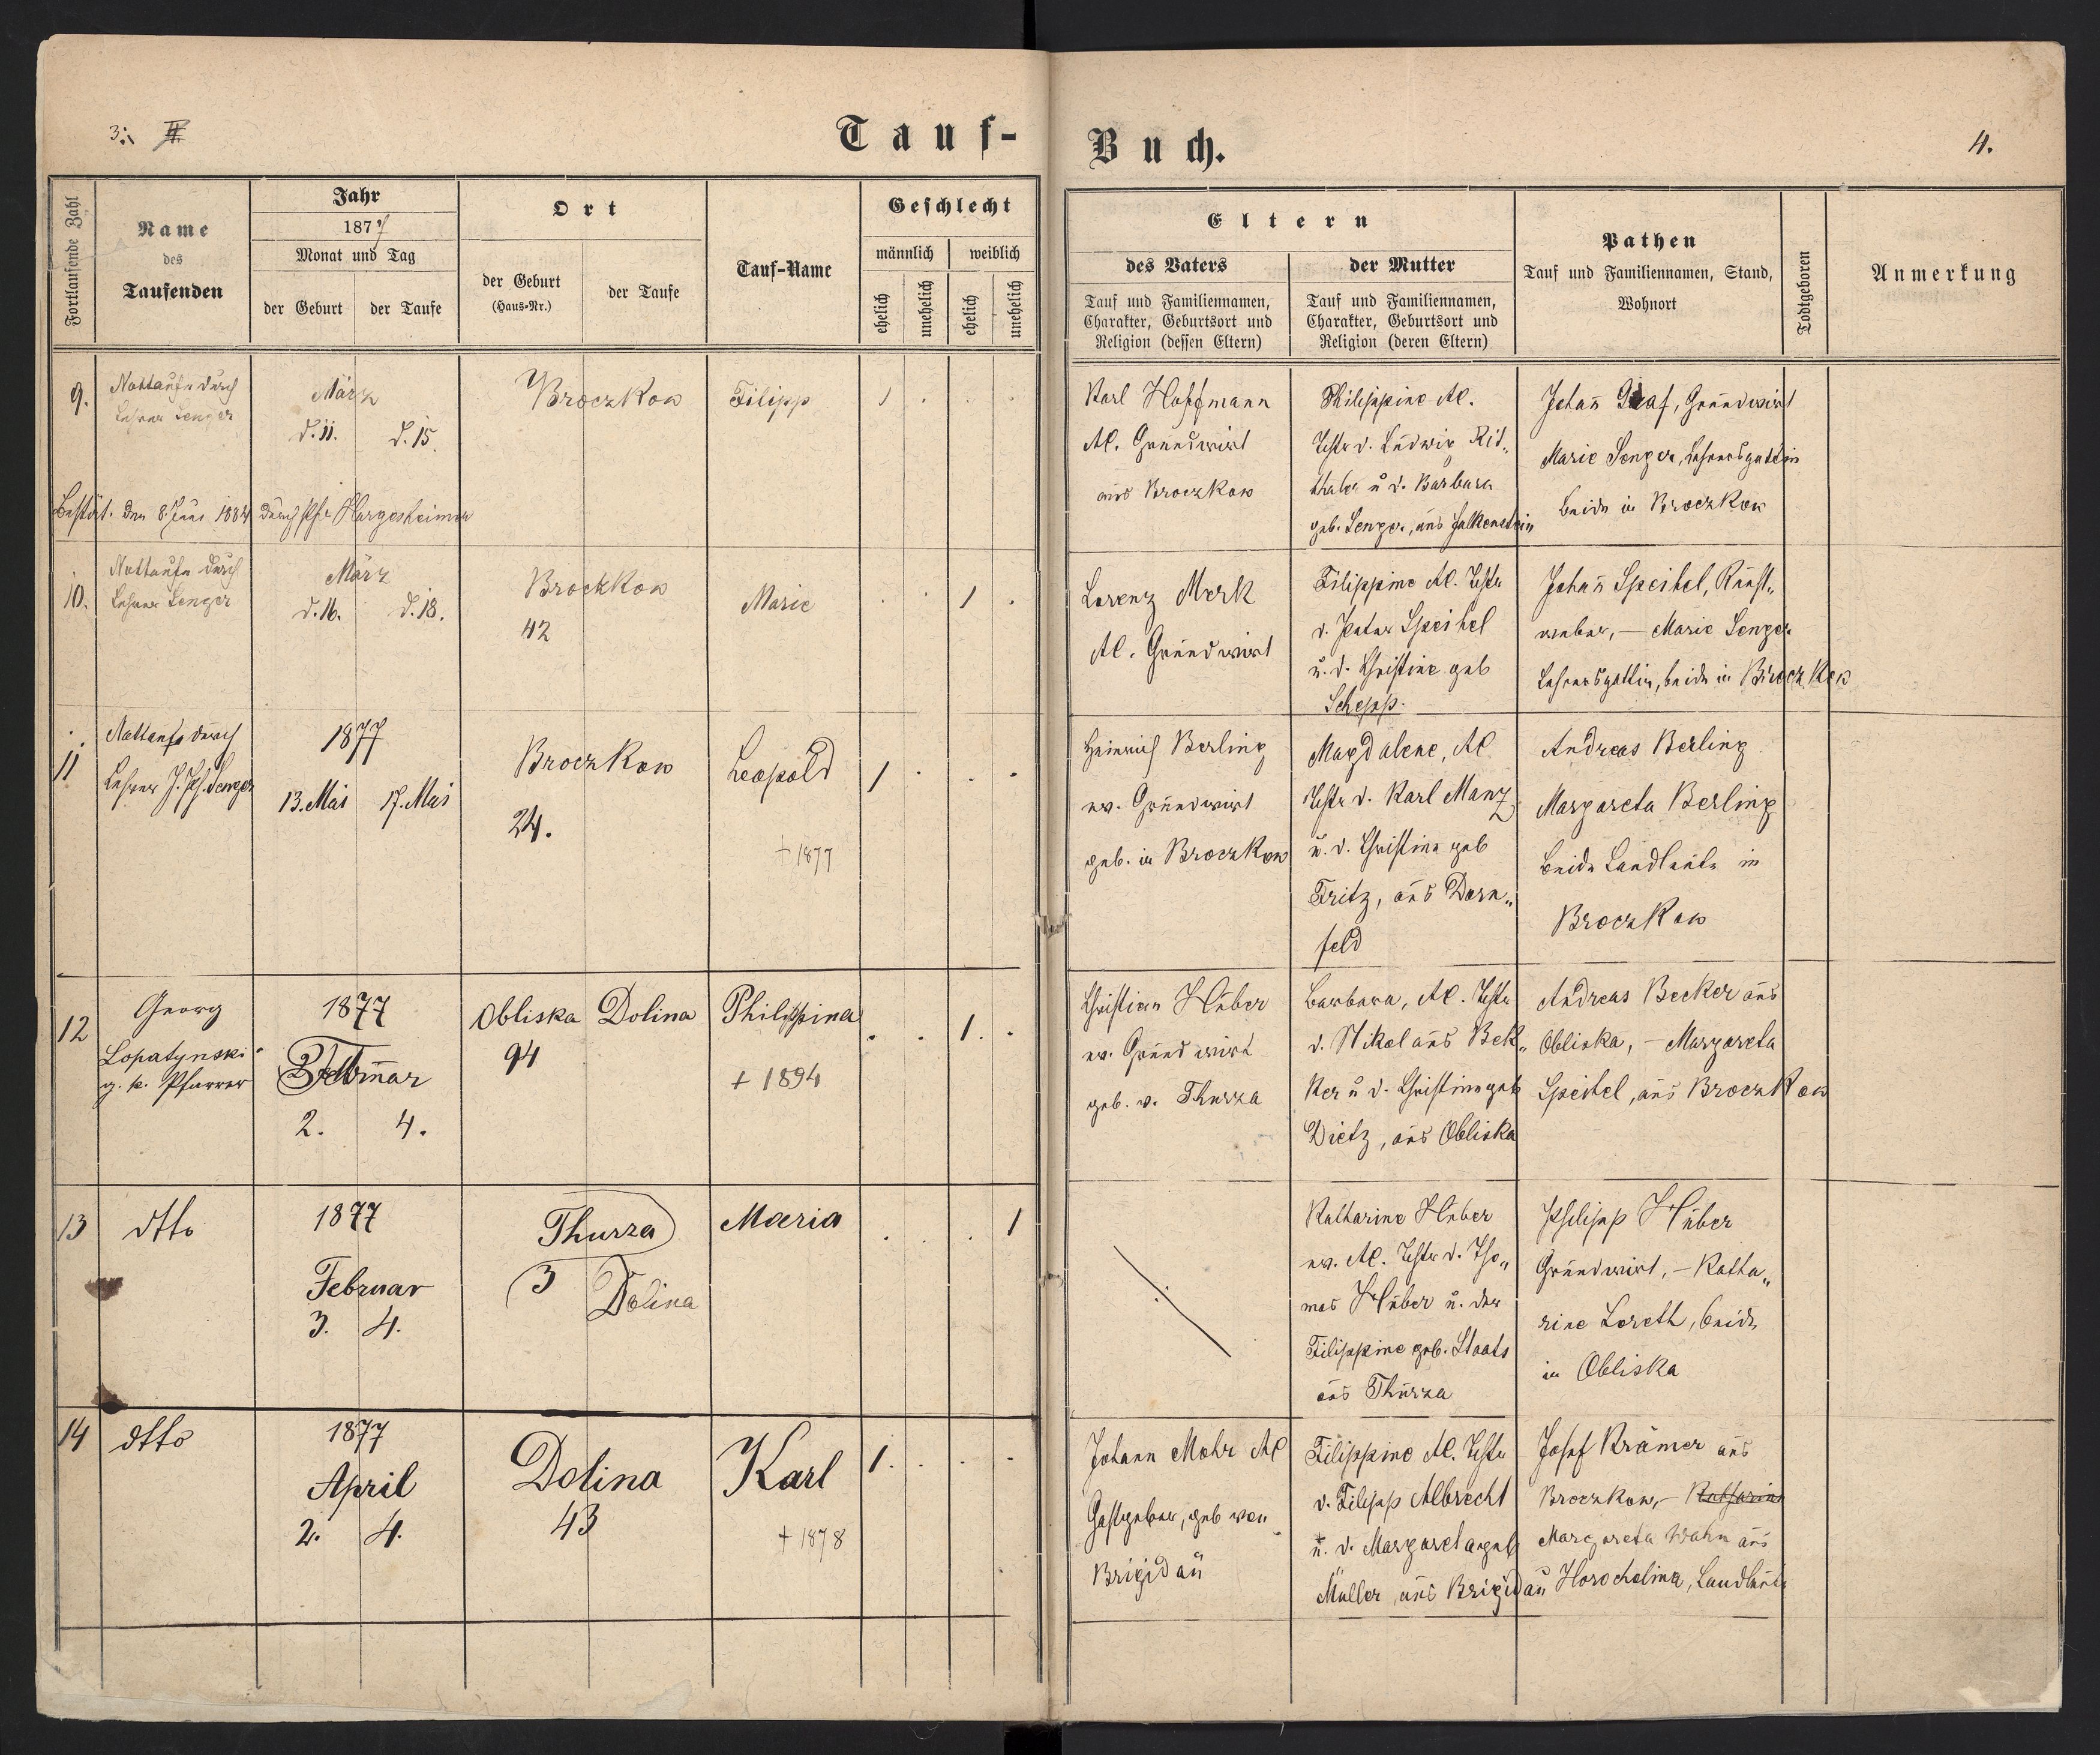 3. II
Tauf-
Buch.
4.
Fortlaufende Zahl
Name
des
Taufenden
Jahr
1877
Monat und Tag
der Geburt
der Taufe
Ort
der Geburt
(Haus-Nr.)
der Taufe
Tauf-Name
Geschlecht
männlich
weiblich
ehelich
unehelich
ehelich
unehelich
Eltern
des Vaters
Tauf und Familiennamen,
Charakter, Geburtsort und
Religion (dessen Eltern)
der Mutter
Tauf und Familiennamen,
Charakter, Geburtsort und
Religion (deren Eltern)
Pathen
Tauf und Familiennamen, Stand,
Wohnort
Todtgeboren
Anmerkung
9.
Nottaufe durch
Lehrer Senger
März
d. 11.
d. 15.
Broczkow
Filipp
1
Karl Hoffmann
AC. Grundwirt
aus Broczkow
Philippine AC.
Tchtr d. Ludwig Rit„
thaler u d. Barbara
geb. Senger, aus Falkenstein
Johan̄ Graf, Grundwirt
Marie Senger, Lehrersgattin
beide in Broczkow
Bestät. den 8 Juni 1884 durch Pfr Hargesheimer
10.
Nottaufe durch
Lehrer Senger
März
d. 16.
d. 18.
Broczkow
42
Marie
1
Lorenz Merk
AC. Grundwirt
Filippine AC. Tchtr
d. Peter Speitel
u. d. Christine geb
Schepp.
Johan̄ Speitel, Kunst„
weber, — Marie Senger
Lehrersgattin, beide in Broczkow
11
Nottaufe durch
Lehrer J. Ph. Senger
1877
13. Mai
17. Mai
Broczkow
24.
Leopold
† 1877
1
Heinrich Berling
ev. Grundwirt
geb. in Broczkow
Magdalene, AC
Tchtr d. Karl Manz
u. d. Christine geb
Fritz, aus Dorn„
feld
Andreas Berling
Margareta Berling
beide Landleute in
Broczkow
12
Georg
Lopatynski
g. k. Pfarrer
1877
Februar
2.
4.
Obliska
94
Dolina
Philippina
† 1894
1
Christian Huber
ev. Grundwirt
geb. v. Thurza
Barbara, AC. Tchtr
d. Nikolaus Bek„
ker u d. Christine geb
Dietz, aus Obliska
Andreas Becker aus
Obliska, — Margareta
Speitel, aus Broczkow
13
dtto
1877
Februar
3.
4.
Thurza
3
Dolina
Maria
1
Katharine Huber
ev. AC. Tchtr d. Tho„
mas Huber u. der
Filippine geb. Staats
aus Thurza
Philipp Huber
Grundwirt, — Katha„
rine Loreth, beide
in Obliska
14
dtto
1877
April
2.
4.
Dolina
43
Karl
† 1878
1
Johann Mohr AC
Gastgeber, geb von
Brigidau
Filippine AC. Tchtr
v. Filipp Albrecht
u. d. Margareta geb
Müller, aus Brigidau
Josef Krämer aus
Broczkow, — Katharine
Margareta Wahn aus
Horocholina, Landleute